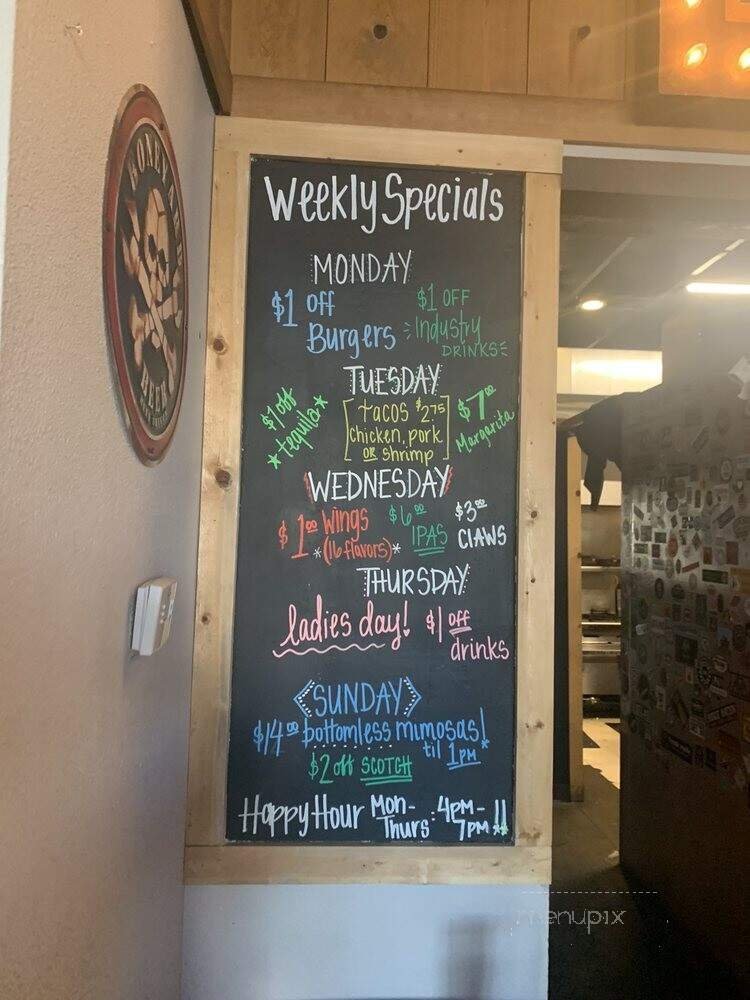 Weekly Specials
MONDAY
$1 off
Burgers
$1 OFF
Industry
DRINKS
TUESDAY
$1 off
tequila
tacos $2.75
chicken, pork
OR shrimp
$7.00
Margarita
WEDNESDAY
$1.00 wings
*(16 flavors)*
$6.00
IPAS
$3.00
CLAWS
THURSDAY
ladies day!
$1 off
drinks
SUNDAY
$14.00 bottomless mimosas!
til 1PM*
$2 off SCOTCH
Happy Hour Mon-Thurs: 4PM-7PM!!
BONEYARD
BEER
menupix